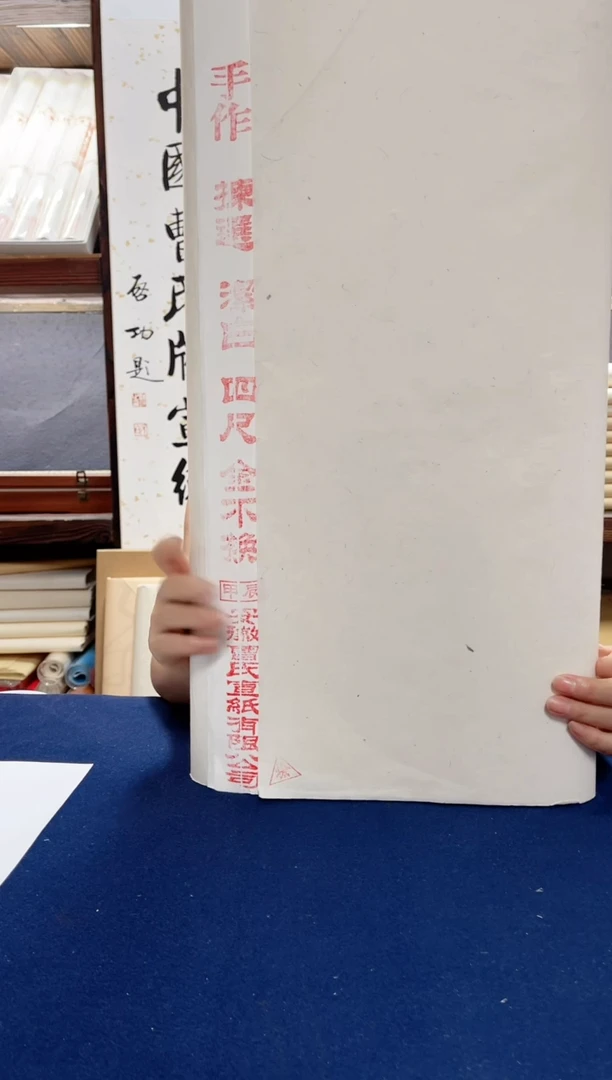 手作 揀選 潔白 四尺 金不換
甲辰
安徽曹氏宣紙有限公司
中國曹氏牌宣紙
啓功題